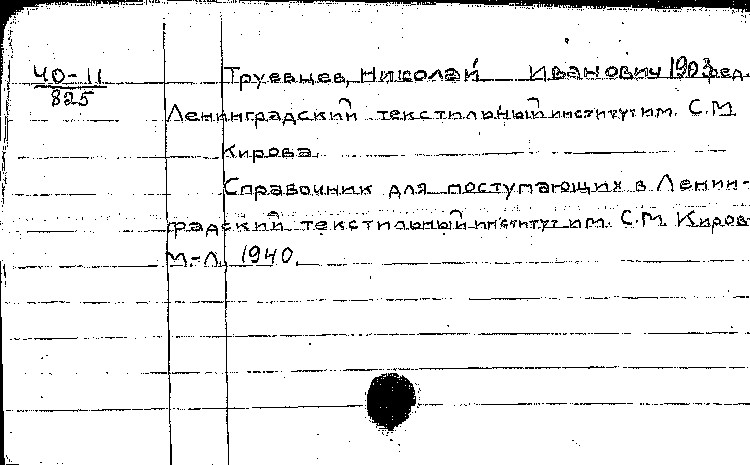 40-11
825
Труевцев, Николай Иванович 1903 ред.
Ленинградский текстильный институт им. С.М.
Кирова.
Справочник для поступающих в Ленин-
градский текстильный институт им. С.М. Киров
М.-Л. 1940.